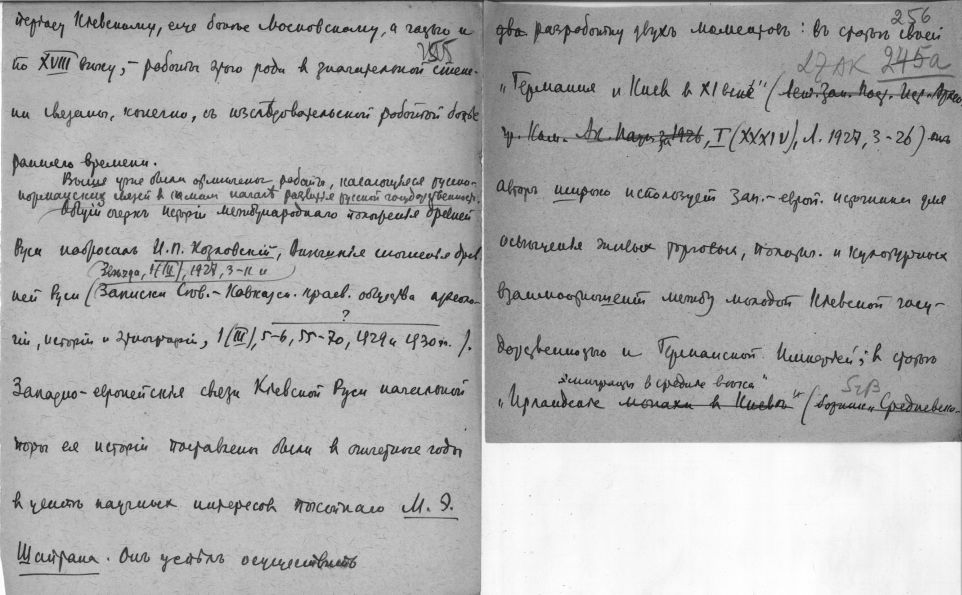 періоду Кіевскому, еще болѣе Московскому, а частью и
по XVIII вѣку, – работы этого рода в значительной степе-
ни связаны, конечно, съ изслѣдовательской работой болѣе
ранняго времени.
Выше уже были отмѣчены работы, касающіеся русско-
норманских связей в самом началѣ развитія русской государственности.
Общій очеркъ исторіи международнаго положенья древней
Руси набросалъ И.П. Козловскій, Внѣшнія сношенья древ
1(III), 1927, 3–11 и
ней Руси (Записки Сѣв.-Кавказск. краев. общества археоло-
?
гіи, исторіи и этнографіи, 1(III), 5–6, 55–70, 1929 и 1930 гг.).
Западно-европейскія связи Кіевской Руси начальной
поры ея исторіи поставлены были в отчетные годы
в центръ научных интересов покойнаго М. Э.
Шайтана. Онъ успѣлъ осуществить
256
два разработку двухъ моментовъ: въ статьѣ своей
27 АК 245а
„Германия и Киев в XI вѣкѣ" (Лѣт. Зан. Пост. Ист.-Архео
гр. Ком. Ак. Наук за 1926, I (XXXIV), Л. 1927, 3–26) онъ
авторъ широко использует зап.-европ. источники для
освѣщенья живых торговых, политич. и культурных
взаимоотношений между молодой Кіевской госу-
дарственностью и Германской Имперіей; в статьѣ
эмигранты в средніе вѣка"
„Ирландские монахи в Кіевѣ" (сборник „Средневѣко-